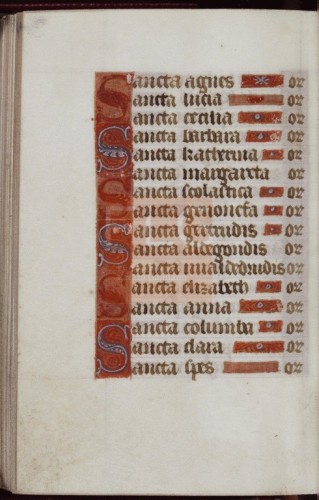 Sancta agnes or
Sancta lucia or
Sancta cecilia or
Sancta barbara or
Sancta katherina or
Sancta margareta or
Sancta scolastica or
Sancta or
Sancta gertrudis or
Sancta aldegondis or
Sancta or
Sancta elizabeth or
Sancta anna or
Sancta columba or
Sancta clara or
Sancta spes or